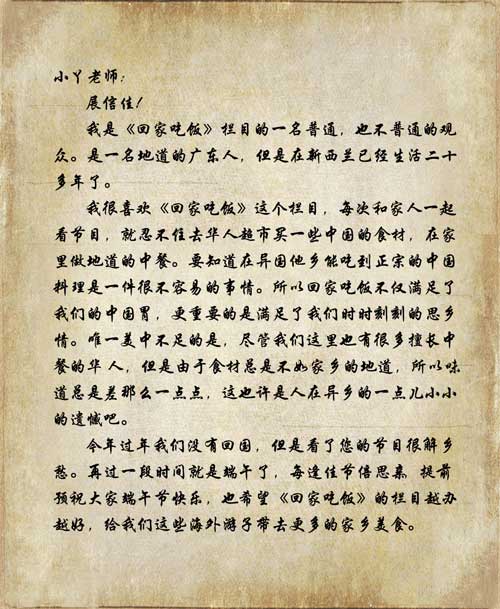 小丫老师：
展信佳！
我是《回家吃饭》栏目的一名普通，也不普通的观
众。是一名地道的广东人，但是在新西兰已经生活二十
多年了。
我很喜欢《回家吃饭》这个栏目，每次和家人一起
看节目，就忍不住去华人超市买一些中国的食材，在家
里做地道的中餐。要知道在异国他乡能吃到正宗的中国
料理是一件很不容易的事情。所以回家吃饭不仅满足了
我们的中国胃，更重要的是满足了我们时时刻刻的思乡
情。唯一美中不足的是，尽管我们这里也有很多擅长中
餐的华 人，但是由于食材总是不如家乡的地道，所以味
道总是差那么一点点，这也许是人在异乡的一点儿小小
的遗憾吧。
今年过年我们没有回国，但是看了您的节目很解乡
愁。再过一段时间就是端午了，每逢佳节倍思亲 提前
预祝大家端午节快乐，也希望《回家吃饭》的栏目越办
越好，给我们这些海外游子带去更多的家乡美食。